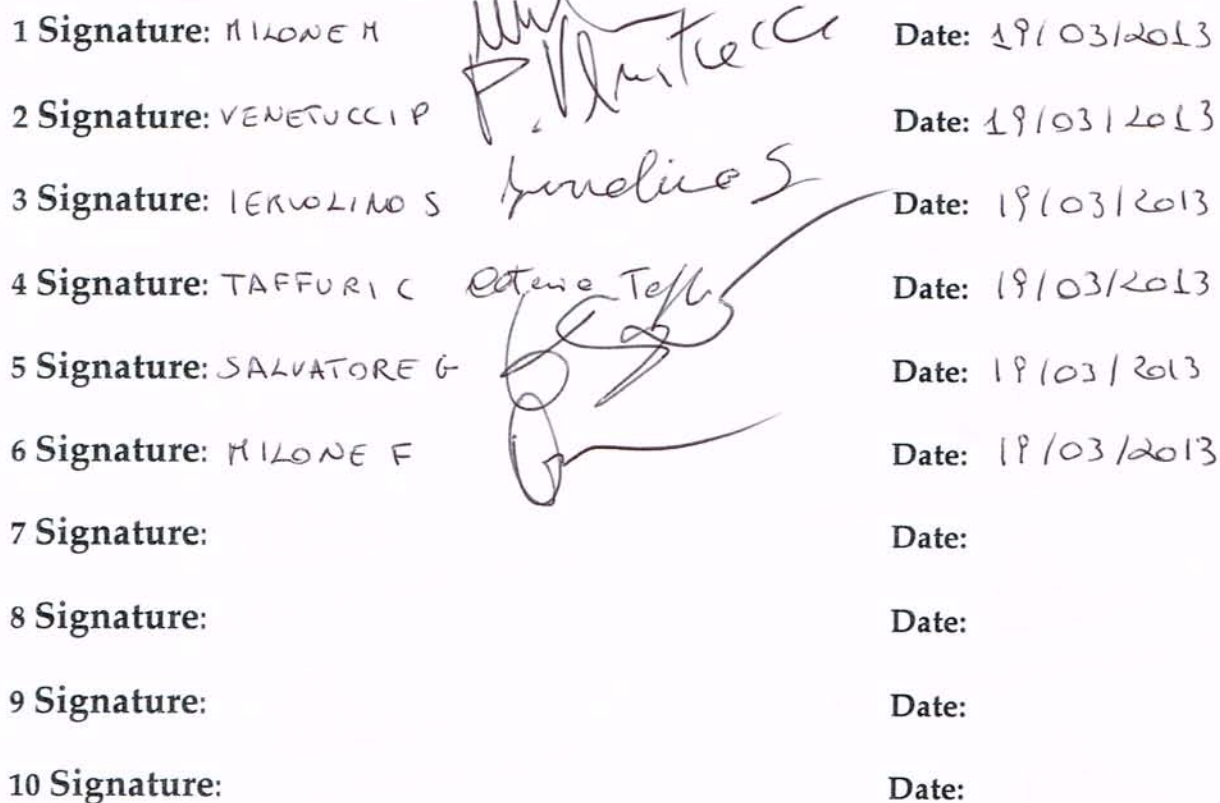 1 Signature: MILONE M Date: 19/03/2013
2 Signature: VENETUCCI P P. Date: 19/03/2013
3 Signature: IERVOLINO S S Date: 19/03/2013
4 Signature: TAFFURI C Date: 19/03/2013
5 Signature: SALVATORE G Date: 19/03/2013
6 Signature: MILONE F Date: 19/03/2013
7 Signature: Date:
8 Signature: Date:
9 Signature: Date:
10 Signature: Date: